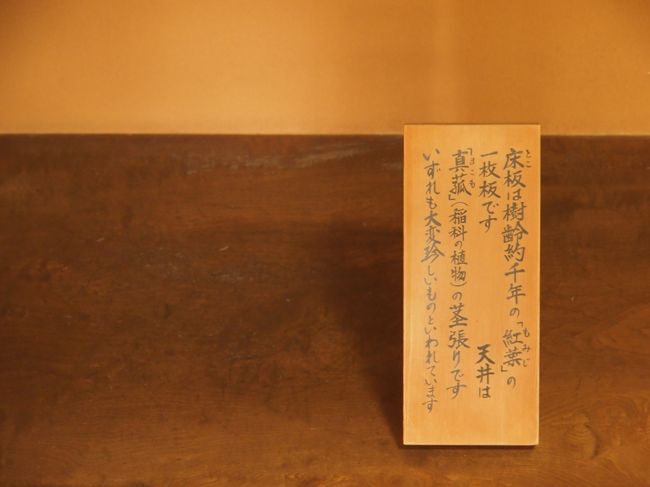 床板は樹齢約千年の「紅葉」の
一枚板です　天井は
「真菰」(稲科の植物)の茎張りです
いずれも大変珍しいものといわれています